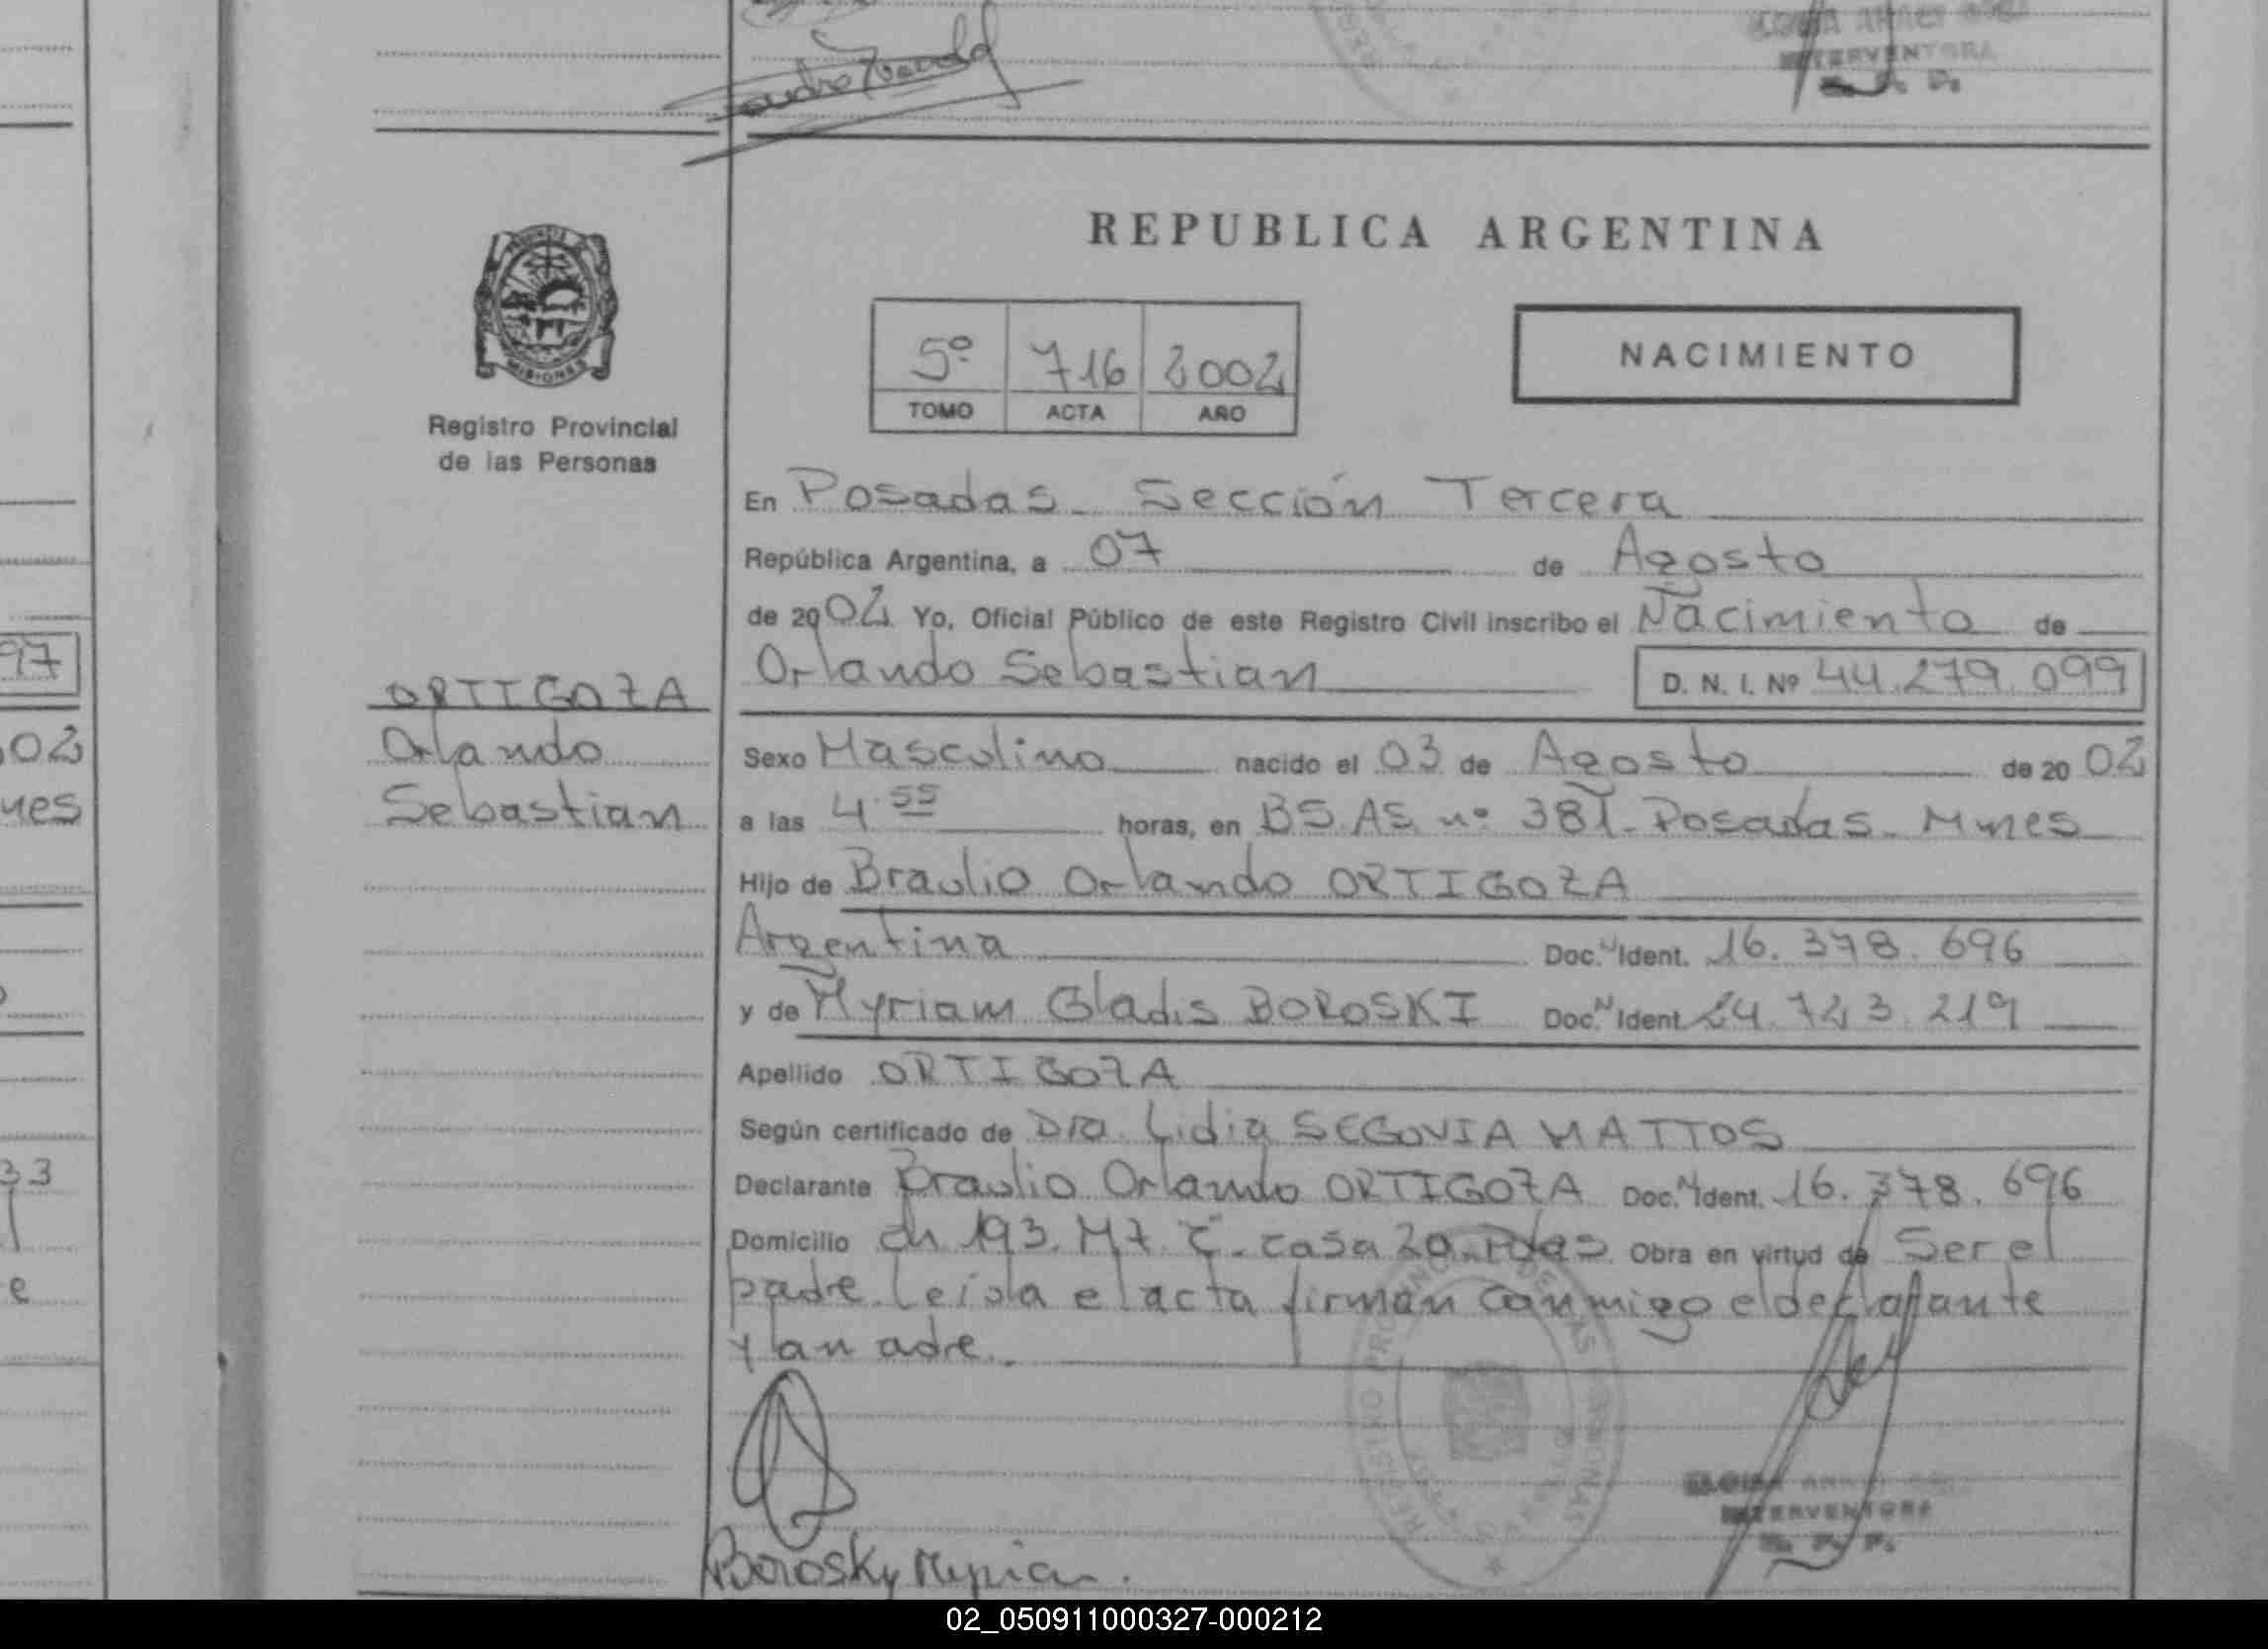 INTERVENTORA
REPUBLICA ARGENTINA
MISIONES
Registro Provincial
de las Personas
5º 716 2002
TOMO ACTA AÑO
NACIMIENTO
En Posadas - Sección Tercera
República Argentina, a 07 de Agosto
de 2002 Yo, Oficial Público de este Registro Civil inscribo el Nacimiento de
97
ORTIGOZA
Orlando Sebastian D. N. I. Nº 44.279.099
02
Orlando
Sexo Masculino nacido el 03 de Agosto de 2002
Sebastian
a las 4.55 horas, en BS.AS. nº 381 - Posadas - Mnes
Hijo de Braulio Orlando ORTIGOZA
Argentina Doc. N Ident. 16.378.696
y de Myriam Gladis BOROSKI Doc. N Ident. 24.723.219
Apellido ORTIGOZA
Según certificado de Dra. Lidia SEGOVIA MATTOS
33
Declarante Braulio Orlando ORTIGOZA Doc. N Ident. 16.378.696
Domicilio Ch 193. Mz. C. casa 20 - Pdas. Obra en virtud de Ser el
e
padre. Leída el acta firman conmigo el declarante
y la madre.
REGISTRO PROVINCIAL DE LAS PERSONAS
INTERVENTORA
R. P. P.
Borosky Myrian.
02_050911000327-000212